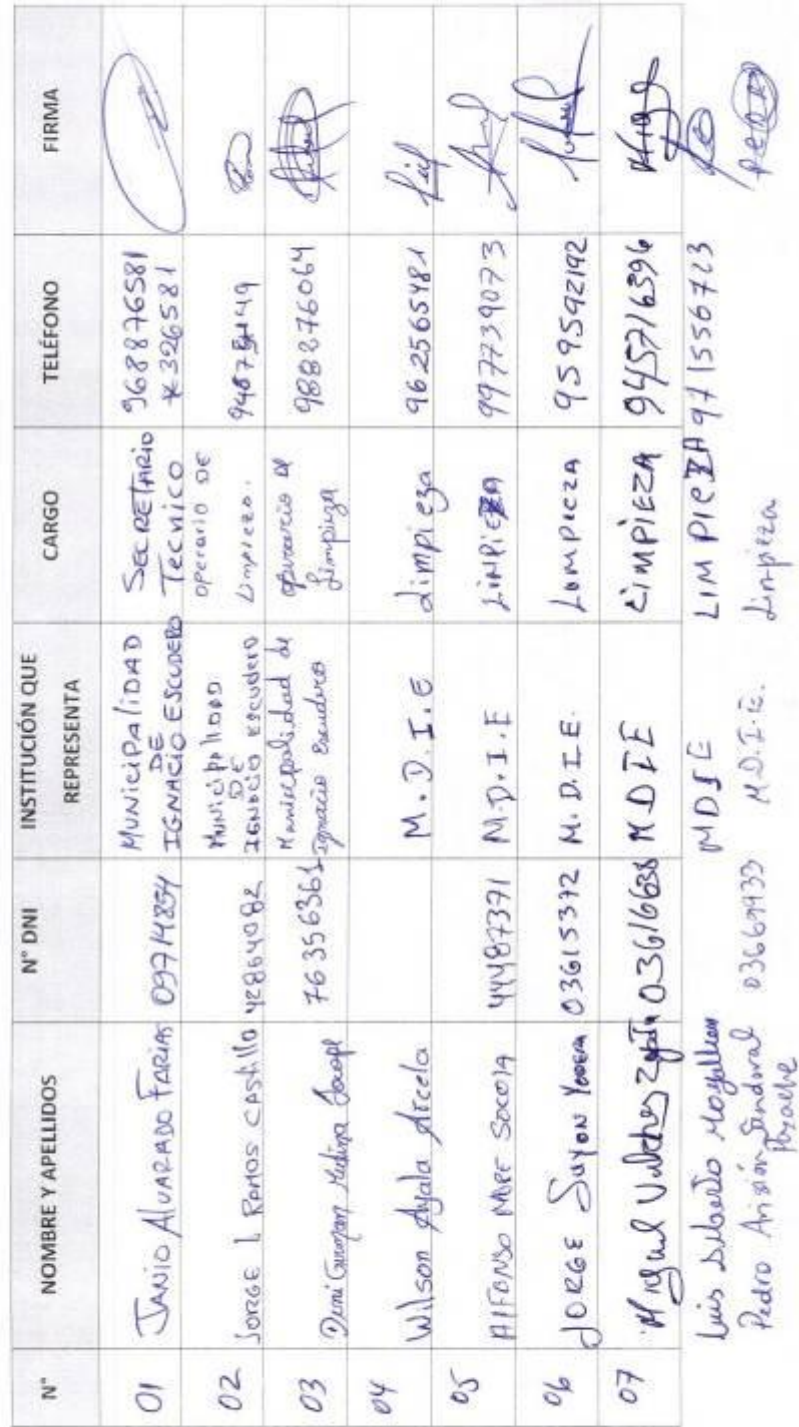 N° NOMBRE Y APELLIDOS N° DNI INSTITUCIÓN QUE REPRESENTA CARGO TELÉFONO FIRMA
01 JANIO ALVARADO FARIAS 09714854 MUNICIPALIDAD DE IGNACIO ESCUDERO SECRETARIO Tecnico 968876581 *326581
02 JORGE L RAMOS CASTILLO 42864082 MUNICIPALIDAD DE IGNACIO ESCUDERO OPERARIO DE Limpieza.
03 Medina 76356361 Municipalidad de Ignacio Escudero operario de Limpieza 988276064
04 Wilson Ayala Arcela M.D.I.E Limpieza 962565481
05 AlFONSO MORE Socola 44487371 M.D.I.E LIMPIEZA 997739073
06 JORGE SUYON 03615372 M.D.I.E. LOMPIEZA 959592192
07 Miguel Vilchez Zapata 03616638 MDIE LIMPIEZA 945716396
Luis MDIE LIMPIEZA 971556723
Pedro Sandoval 03669933 M.D.I.E. Limpieza PEDRO